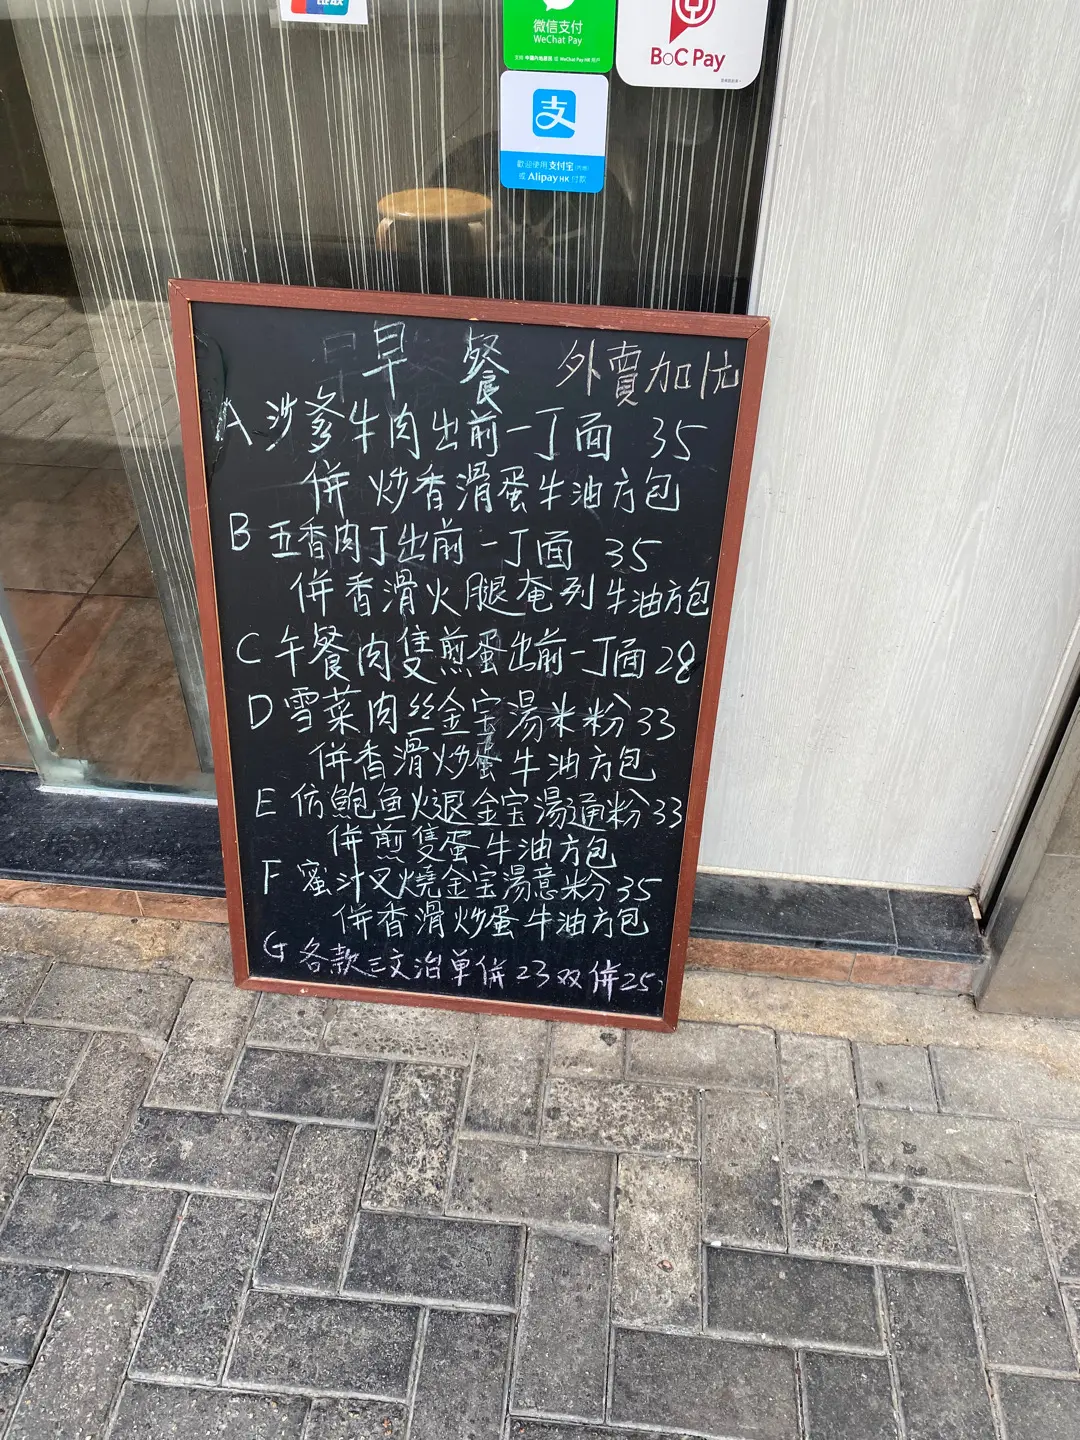 微信支付
WeChat Pay
BoC Pay
支
歡迎使用 支付宝
或 Alipay HK 付款
早餐 外賣加1元
A 沙爹牛肉出前一丁面 35
併 炒香滑蛋牛油方包
B 五香肉丁出前一丁面 35
併香滑火腿奄列牛油方包
C 午餐肉隻煎蛋出前一丁面 28
D 雪菜肉丝金宝湯米粉 33
併香滑炒蛋牛油方包
E 仿鮑魚火退金宝湯通粉 33
併煎隻蛋牛油方包
F 蜜汁叉燒金宝湯意粉 35
併香滑炒蛋牛油方包
G 各款三文治單併 23 双併 25